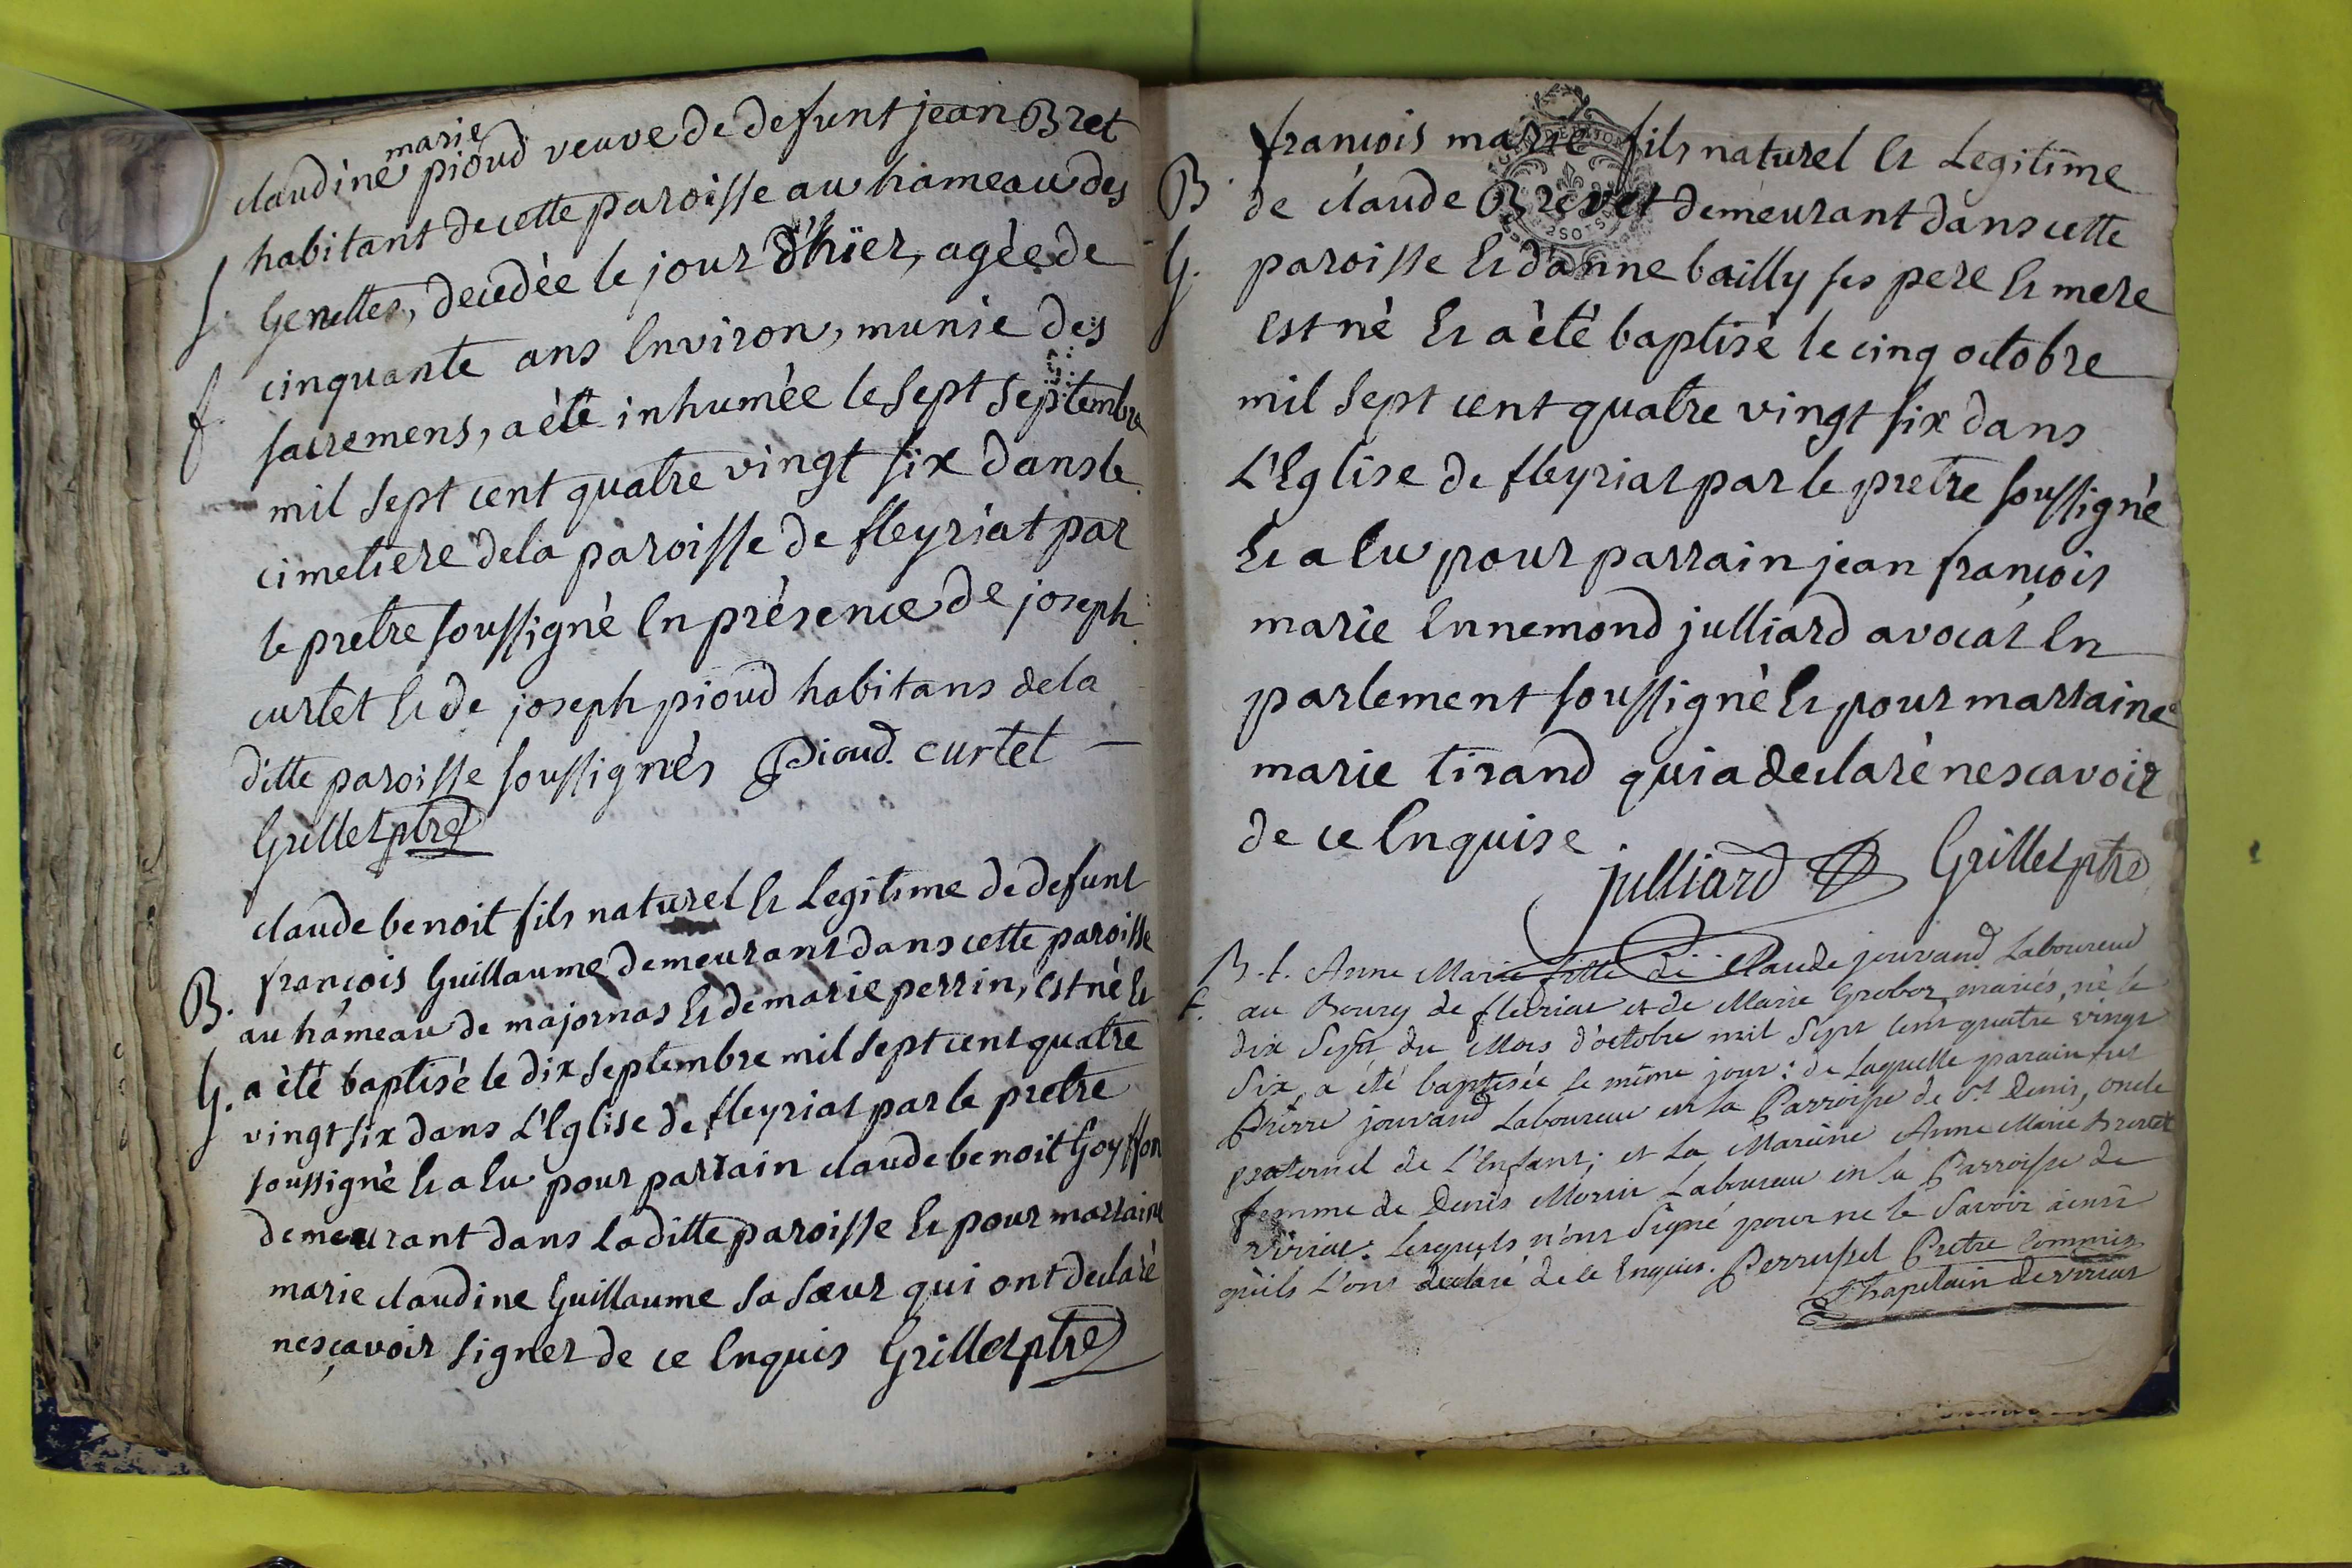 claudine marie pioud veuve de defunt jean Bret
habitant de cette paroisse au hameau des
S. Genettes, decedée le jour d'hïer, agèe de
cinquante ans Environ, munie des
f. sacremens, a èté inhumée le sept septembre
mil sept cent quatre vingt six dans le
cimetiere dela paroisse de fleyriat par
le pretre soussigné En présence de joseph
curtet Et de joseph pioud habitans dela
ditte paroisse soussignés Pioud. curtet
Grillet ptre
claude benoit fils naturel Et Legitime de defunt
françois Guillaume demeurant dans cette paroisse
B. au hameau de majornas Et de marie perrin, est né Et
G. a èté baptisé le dix septembre mil sept cent quatre
vingt six dans L'Eglise de fleyriat par le pretre
soussigné Et a Eu pour parrain claude benoit Goyffon
demeurant dans la ditte paroisse Et pour marraine
marie claudine Guillaume sa sœur qui ont declaré
ne sçavoir signer de ce Enquis Grillet ptre
françois marie fils naturel Et Legitime
B. de claude Brevet demeurant dans cette
G. paroisse Et d'anne bailly ses pere Et mere
Est né Et a èté baptisé le cinq octobre
mil sept cent quatre vingt six dans
L'Eglise de fleyriat par le pretre soussigné
Et a Eu pour parrain jean françois
marie Ennemond julliard avocat En
parlement soussigné Et pour marraine
marie tirand qui a declaré ne scavoir
de ce Enquise.
julliard Grillet ptre
B. f. Anne Marie fille de Claude jouvand Laboureur
f. au Bourg de fleuriat et de Marie Groboz mariés, né le
dix Sept du Mois d'octobre mil Sept cent quatre vingt
Six, a été baptisée le même jour: de laquelle parain fut
Pierre jouvand Laboureur en la Parroisse de St. Denis, oncle
paternel de L'Enfant; et La Mareine Anne Marie Brevet
femme de Denis Morin Laboureur en la Parroisse de
viriat: Lesquels n'ont Signé pour ne le Savoir ainsi
qu'ils L'ont declaré de ce Enquis. Perrussel Pretre Commis
Chapelain de viriat